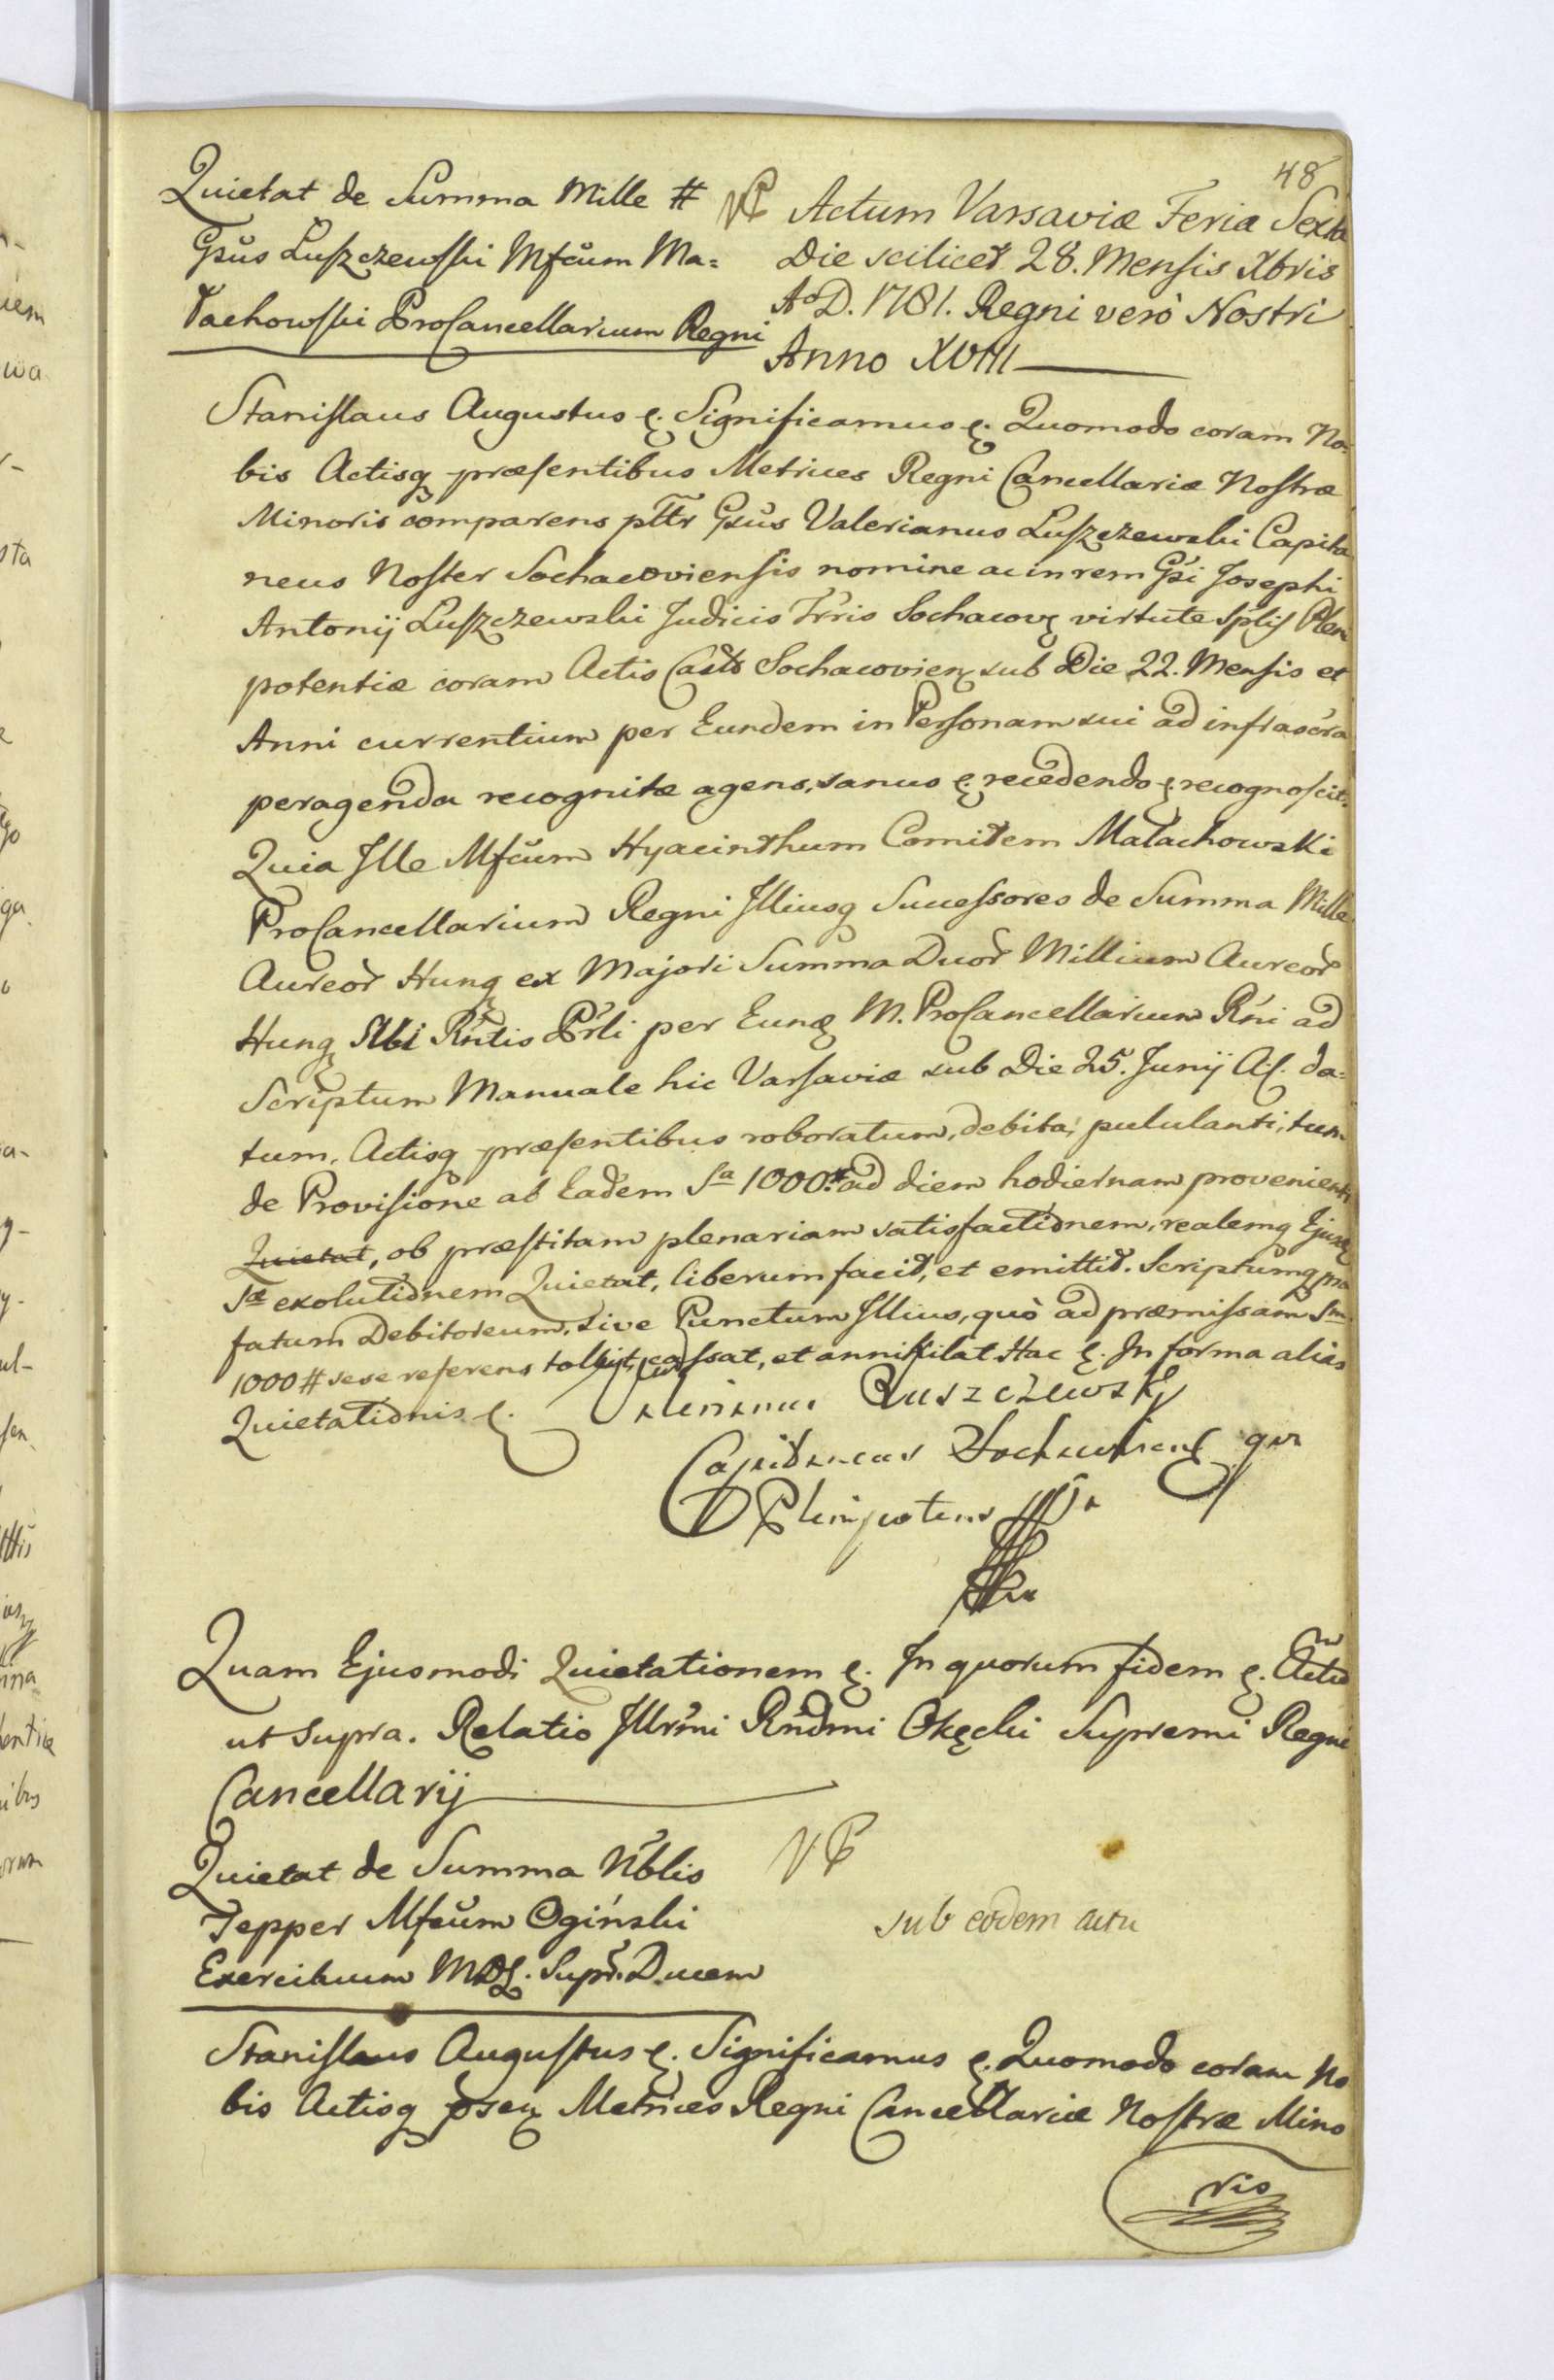 48
Quietat de Summa Mille #
Gsus Luszczewski Mfcum Ma=
łachowski ProCancellarium Regni
Actum Varsaviæ Feria Sexta
Die scilicet 28. Mensis Xbris
A° D. 1781. Regni verò Nostri
Anno XVIII
Stanislaus Augustus &. Significamus &. Quomodo coram No=
bis Actisq præsentibus Metrices Regni Cancellariæ Nostræ
Minoris comparens pttr Gsus Valerianus Luszczewski Capita
neus Noster Sochacoviensis nomine ac in rem Gsi Josephi
Antonij Luszczewski Judicis Trris Sochacov virtute splis Pleni
potentiæ coram Actis Castr Sochacovien sub Die 22. Mensis et
Anni currentium per Eundem in Personam sui ad infrascra
peragenda recognitæ agens, sanus &. recedendo &. recognoscit.
Quia Ille Mfcum Hyacinthum Comitem Małachowski
ProCancellarium Regni Illiusq Successores de Summa Mille
Aureor Hung ex Majori Summa Duor Millium Aureor
Hung Sibi Rntis Prli per Eund M. ProCancellarium Rni ad
Scriptum Manuale hic Varsaviæ sub Die 25. Junij A. da=
tum, Actisq præsentibus roboratum, debita, pululanti, tum
de Provisione ab Eadem Sa 1000 # ad diem hodiernam provenienti
Quietat, ob præstitam plenariam satisfactionem, realemq Ejusd
Sæ exolutionem Quietat, liberum facit, et emittit. Scriptumq præ
fatum Debitoreum, sive Punctum Illius, quò ad præmissam Sm
1000 # sese referens tollit, cassat, et annihilat. Hac &. In forma alias
Quietationis &.
Valerianus Luszczewsky
Capitaneus Sochaviens
Plenipotens
Quam Ejusmodi Quietationem &. In quorum fidem &. Actu
ut supra. Relatio Illrmi Rndmi Okęcki Supremi Regni
Cancellarij
Quietat de Summa Nblis
Tepper Mfcum Ogiński
Exercituum MDL. Supr. Ducem
sub eodem actu
Stanislaus Augustus &. Significamus &. Quomodo coram No
bis Actisq psen Metrices Regni Cancellariæ Nostræ Mino
ris